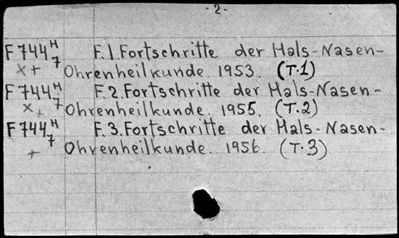 - 2. -
F 744 H/7 F.1. Fortschritte der Hals-Nasen-
x + Ohrenheilkunde. 1953. (T.1)
F 744 H/7 F.2. Fortschritte der Hals-Nasen-
x + Ohrenheilkunde. 1955. (T.2)
F 744 H/7 F.3. Fortschritte der Hals-Nasen-
+ Ohrenheilkunde. 1956. (T.3)